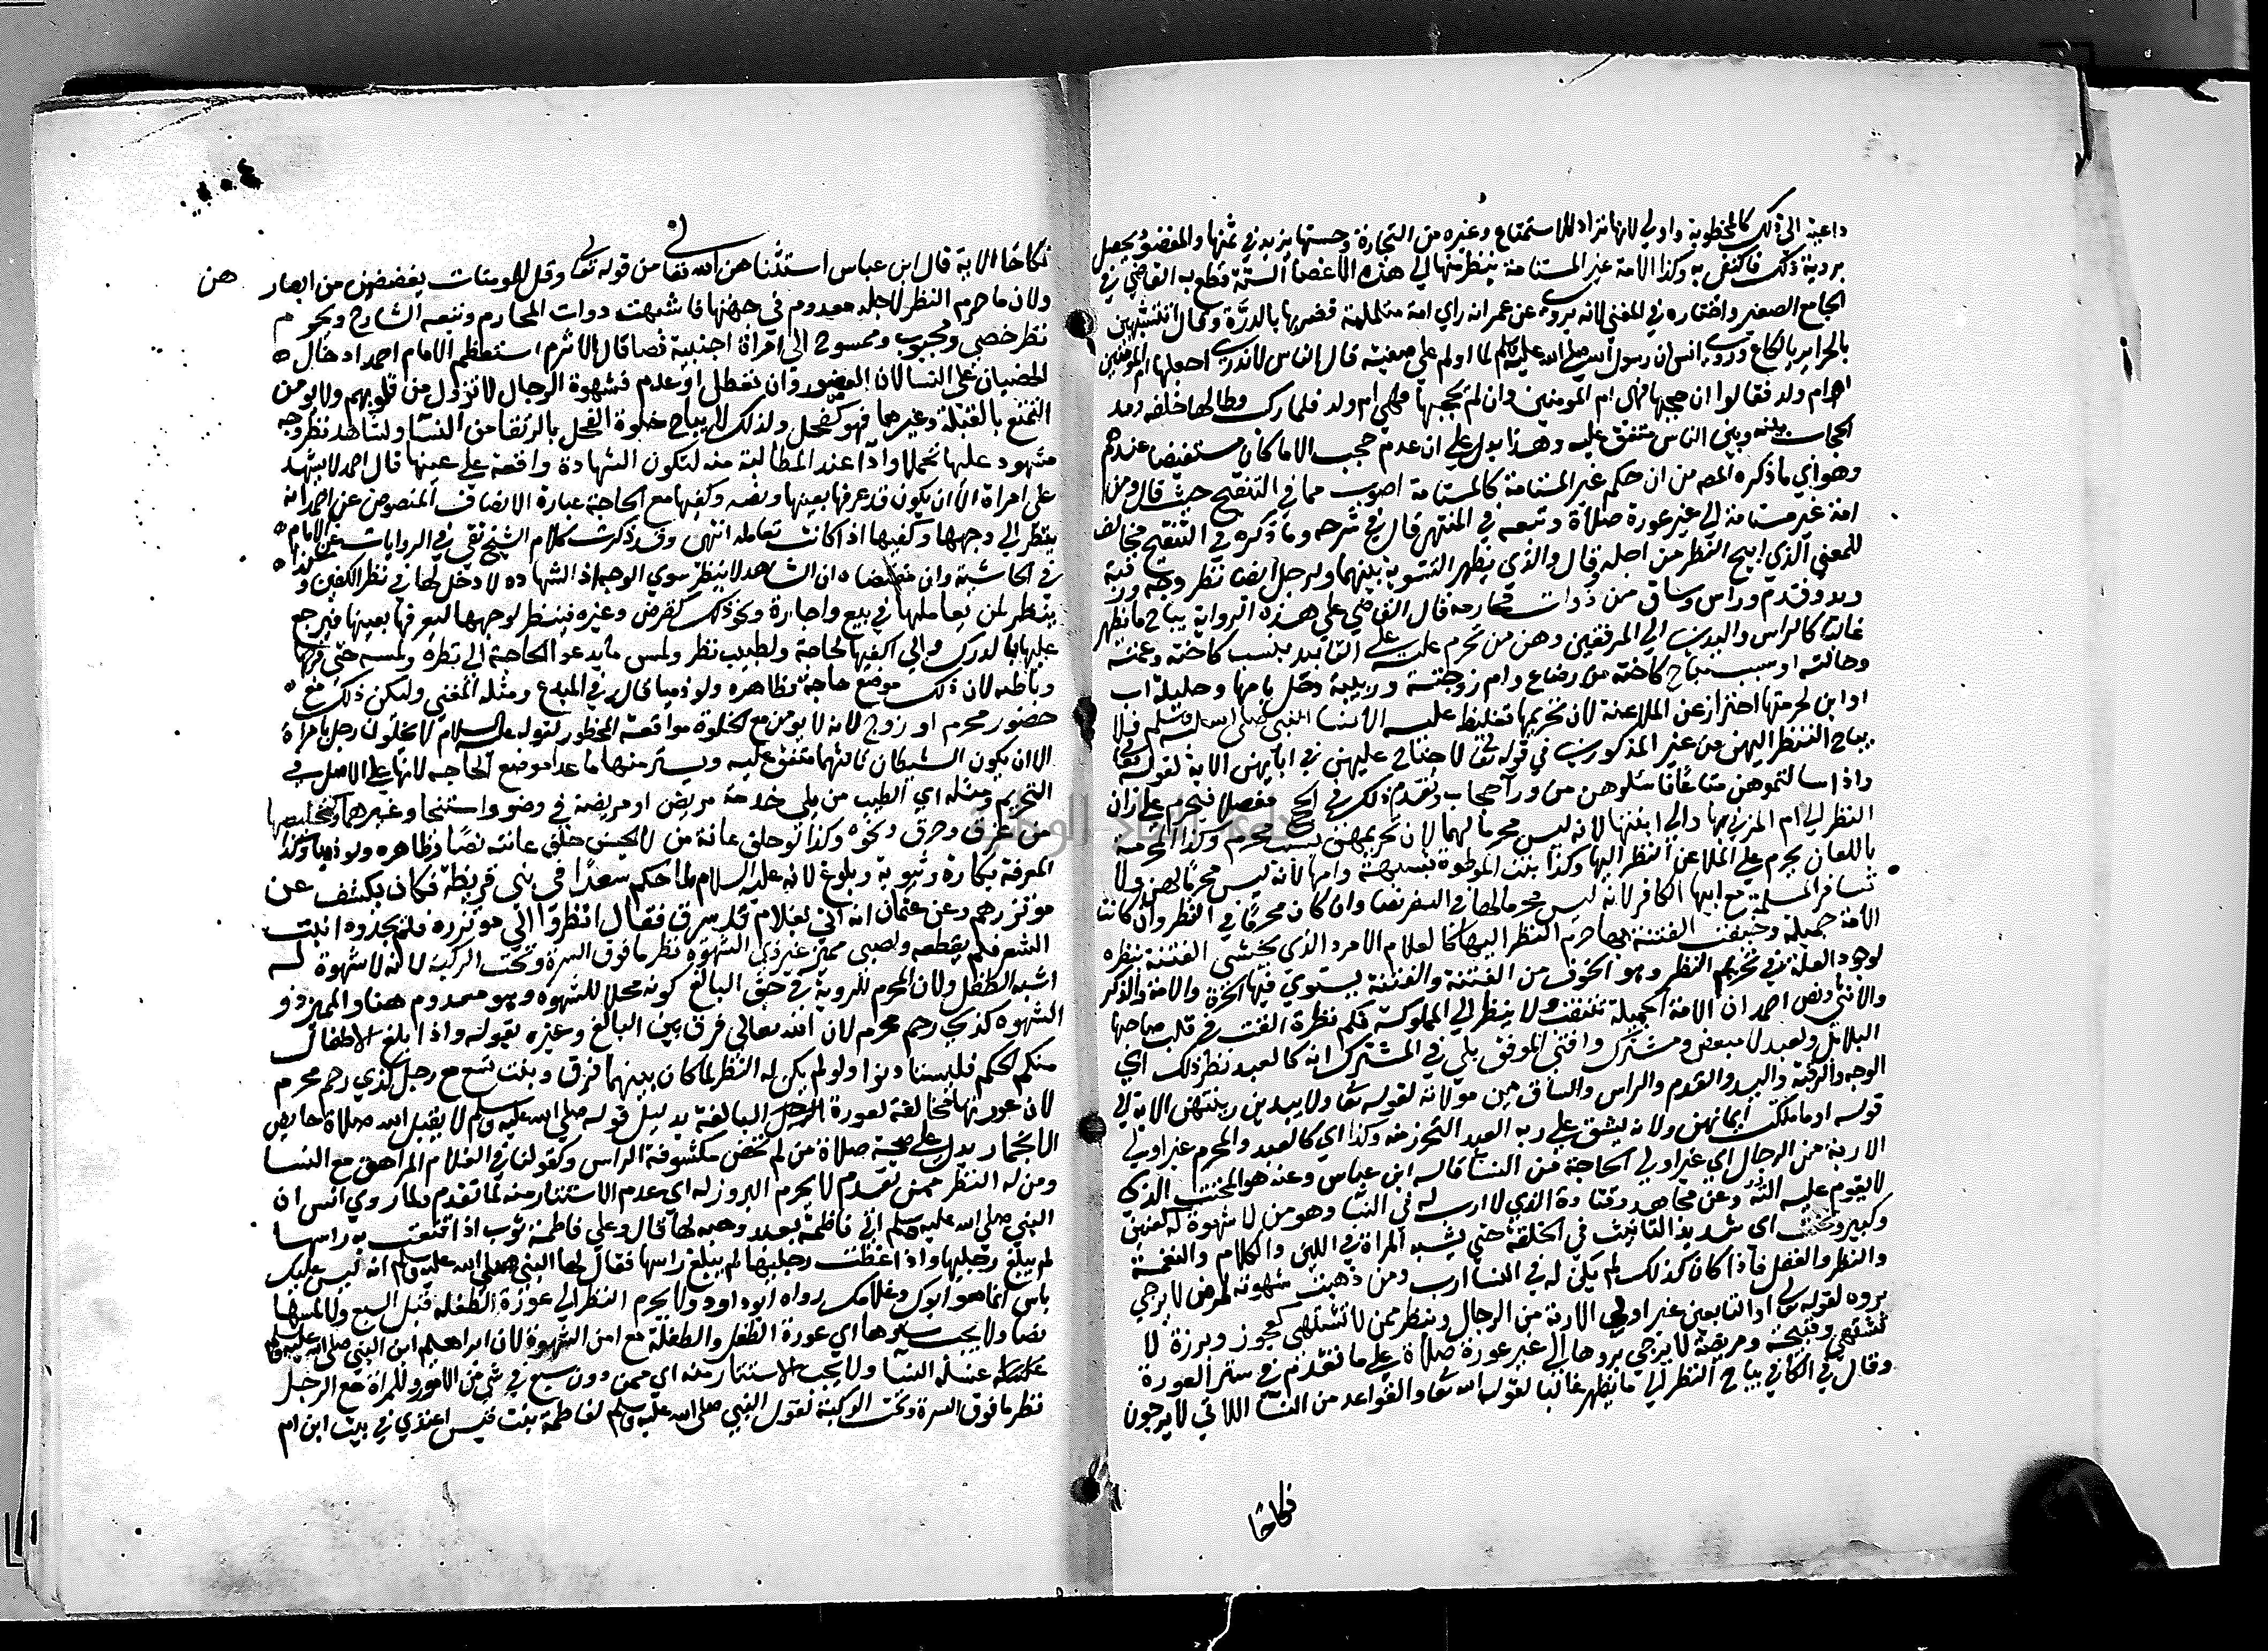 داعية الى ذلك كالمخطوبة واولى لانها تراد للاستمتاع وغيره من التجارة وحسنها يزيد في ثمنها والمقصود يحصل
برؤية ذلك فاكتفى به وكذا الامة غير المستامة ينظر منها الى هذه الاعضا الستة قطع به القاضي في
الجامع الصغير واختاره في المغني لانه روي عن عمر انه راى امة متلملمة فضربها بالدرة وقال اتتشبهين
بالحراير يالكاع وروى انس ان رسول الله صلى الله عليه وسلم لما اولم على صفية قال الناس لا ندري اجعلها ام المؤمنين
ام ام ولد فقالوا ان حجبها فهي ام المومنين وان لم يحجبها فهي ام ولد فلما ركب وطا لها خلفه ومد
الحجاب بينه وبين الناس متفق عليه وهذا يدل على ان عدم حجب الاما كان مستفيضا عندهم
وهو اي ما ذكره المص من ان حكم غير المستامة كالمستامة اصوب مما في التنقيح حيث قال ومن
امة غير مستامة الى غير عورة صلاة وتبعه في المنتهى قال في شرحه وما ذكره في التنقيح مخالف
للمعنى الذي ابيح النظر من اجله وقال والذي يظهر التسوية بينهما ولرجل ايضا نظر وجه ورقبة
ويد وقدم وراس وساق من ذوات محارمه قال القاضي على هذه الرواية يباح ما يظهر
غالبا كالراس واليدين الى المرفقين وهن من تحرم عليه على التابيد بنسب كاخته وعمته
وخالته او سبب مباح كاخته من رضاع وام زوجته وربيبة دخل بامها وحليلة اب
او ابن لحرمتها احتراز عن الملاعنة لان تحريمها تغليظ عليه الا نسا النبي صلى الله عليه وسلم فلا
يباح النظر اليهن من غير المذكورين في قوله تعالى لا جناح عليهن في ابايهن الاية لقوله تعالى
واذا سالتموهن متاعا فاسلوهن من ورا حجاب وتقدم ذلك في الحج مفصلا فيحرم على زان
النظر الى ام المزني بها والى ابنتها لانه ليس محرما لهما لان تحريمهن بسبب محرم وكذا المحرمة
باللعان يحرم على الملاعن النظر اليها وكذا بنت الموطوة بشبهة وامها لانه ليس محرما لهن ولا
تسافر المسلمة مع ابيها الكافر لانه ليس محرما لها في السفر نصا وان كان محرما في النظر وان كانت
الامة جميلة وخيفت الفتنة بها حرم النظر اليها كالغلام الامرد الذي يخشى الفتنة بنظره
لوجود العلة في تحريم النظر وهو الخوف من الفتنة والفتنة يستوي فيها الحرة والامة والذكر
والانثى ونص احمد ان الامة الجميلة تنتقب ولا ينظر الى المملوكة فكم نظرة القت في قلب صاحبها
البلابل ولعبد لا مبعض ومشترك وافتى الموفق بلى في المشترك انه كالعبد نظر ذلك اي
الوجه والرقبة واليد والقدم والراس والساق من مولاته لقوله تعا ولا يبدين زينتهن الاية الى
قوله او ما ملكت ايمانهن ولانه يشق على ربه العبد التحرز منه وكذا اي كالعبد والمحرم غير اولي
الاربة من الرجال اي غير اولى الحاجة من النسا قاله ابن عباس وعنه هو المخنث الذي
لا يقوم عليه آلته وعن مجاهد وقتادة الذي لا ارب له في النسا وهو من لا شهوة له كعنين
وكبير ومخنث اي شديد التانيث في الخلقة حتى يشبه المراة في اللين والكلام والنغمة
والنظر والفعل فاذا كان كذلك لم يكن له في النسا ارب ومن ذهبت شهوته لمرض لا يرجى
بروه لقوله تعالى او التابعين غير اولي الاربة من الرجال وينظر ممن لا تشتهى كعجوز وبرزة لا
تشتهي وقبيحة ومريضة لا يرجى بروها الى غير عورة صلاة على ما تقدم في ستر العورة
وقال في الكافي يباح النظر الى ما يظهر غالبا لقوله الله تعا والقواعد من النسا اللاتي لا يرجون
نكاحا
نكاحا الاية قال ابن عباس استثناهن الله تعا من قوله تعالى وقل للمومنات يغضضن من ابصارهن
ولان ما حرم النظر لاجله معدوم في جهتها فاشبهت ذوات المحارم وتبعه الشارح ويحرم
نظر خصي ومجبوب وممسوح الى امراة اجنبية نصا قال الاثرم استعظم الامام احمد ادخال
الخصيان على النسا لان العضو وان تعطل او عدم فشهوة الرجال لا تزول من قلوبهم ولا يومن
التمتع بالقبلة وغيرها فهو كفحل ولذلك لا يباح خلوة الفحل بالرتقا من النسا ولشاهد نظر وجه
مشهود عليها تحملا وادا عند المطالبة منه لتكون الشهادة واقعة على عينها قال احمد لا يشهد
على امراة الا ان يكون قد عرفها بعينها ونصه وكفيها مع الحاجة عبارة الانصاف المنصوص عن احمد انه
ينظر الى وجهها وكفيها اذا كانت تعامله انتهى وقد ذكرت كلام الشيخ تقي في الروايات عن الامام
في الحاشية وان مقتضاه ان الشاهد لا ينظر سوى الوجه اذ الشهادة لا دخل لها في نظر الكفين وكذا
ينظر لمن يعاملها في بيع واجارة ونحو ذلك كقرض وغيره فينظر لوجهها ليعرفها بعينها فيرجع
عليها بالدرك والى كفيها لحاجة ولطبيب نظر ولمس ما يدعو الحاجة الى نظره ولمسه حتى فرجها
وباطنه لانه ذلك موضع حاجة وظاهره ولو ذميا قاله في المبدع ومثله المغني وليكن ذلك مع
حضور محرم او زوج لانه لا يومن مع الخلوة مواقعة المحظور لقوله عليه السلام لا يخلون رجل بامراة
الا ان يكون الشيطان ثالثهما متفق عليه ويستر منها ما عدا موضع الحاجه لانها على الاصل في
التحريم ومثله اي الطبيب من يلي خدمة مريض او مريضة في وضو واستنجا وغيرهما وكتخليصها
من غرق وحرق ونحوه وكذا لو حلق عانة من لا يحسن حلق عانته نصا وظاهره ولو ذميا وكذا
لمعرفة بكارة وثيوبة وبلوغ لانه عليه السلام لما حكم سعدا في بني قريظة فكان يكشف عن
موتزرهم وعن عثمان انه اتي بغلام قد سرق فقال انظروا الى موتزره فلم يجدوه انبت
الشعر فلم يقطعه ولصبي مميز غير ذي الشهوة نظر ما فوق السرة وتحت الركبة لانه لا شهوة له
اشبه الطفل ولان المحرم للروية في حق البالغ كونه محلا للشهوه وهو معدوم هنا والمميز ذو
الشهوه كذي رحم محرم لان الله تعالى فرق بين البالغ وغيره بقوله واذا بلغ الاطفال
منكم الحلم فليستاذنوا ولو لم يكن له النظر لما كان بينهما فرق وبنت تسع مع رجل كذي رحم محرم
لان عورتها مخالفة لعورة البالغة بدليل قوله صلى الله عليه وسلم لا يقبل الله صلاة حايض
الا بخمار يدل على صحة صلاة من لم تحض مكشوفة الراس وكقولنا في الغلام المراهق مع النسا
ومن له النظر ممن تقدم لا يحرم البروز له اي عدم الاستتار منه لما تقدم ولما روى انس ان
النبي صلى الله عليه وسلم اتى فاطمة بعبد وهبه لها قال وعلى فاطمة ثوب اذا قنعت به راسها
لم يبلغ رجليها واذا غطت رجليها لم يبلغ راسها فقال لها النبي صلى الله عليه وسلم انه ليس عليك
باس انما هو ابوك وغلامك رواه ابو داود ولا يحرم النظر الى عورة الطفلة قبل السبع ولا لمسها
نصا ولا يجب سترها اي عورة الطفل والطفلة مع امن الشهوة لان ابراهيم ابن النبي صلى الله عليه وسلم
غسله النسا ولا يجب الاستتار منه اي ممن دون سبع في شي من الامور وللمراة مع الرجل
نظر ما فوق السرة وتحت الركبة لقول النبي صلى الله عليه وسلم لفاطمة بنت قيس اعتدي في بيت ابن ام